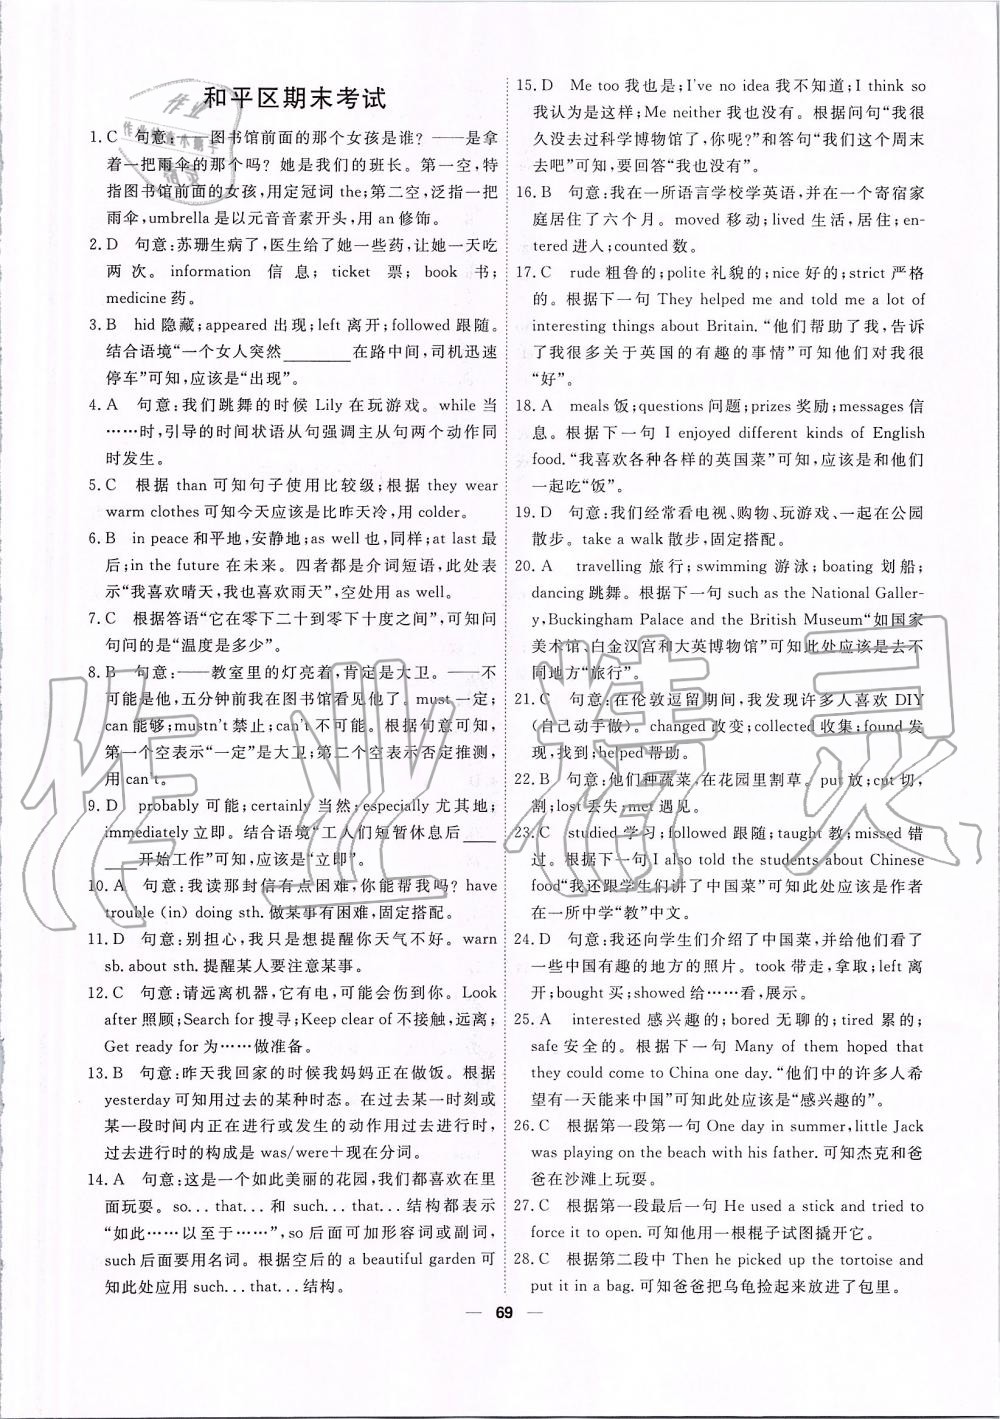 和平区期末考试
1. C　句意:——图书馆前面的那个女孩是谁?——是拿
着一把雨伞的那个吗?她是我们的班长。第一空,特
指图书馆前面的女孩,用定冠词 the;第二空,泛指一把
雨伞,umbrella 是以元音音素开头,用 an 修饰。
2. D　句意:苏珊生病了,医生给了她一些药,让她一天吃
两次。information 信息;ticket 票;book 书;
medicine 药。
3. B　hid 隐藏;appeared 出现;left 离开;followed 跟随。
结合语境“一个女人突然________在路中间,司机迅速
停车”可知,应该是“出现”。
4. A　句意:我们跳舞的时候 Lily 在玩游戏。while 当
……时,引导的时间状语从句强调主从句两个动作同
时发生。
5. C　根据 than 可知句子使用比较级;根据 they wear
warm clothes 可知今天应该是比昨天冷,用 colder。
6. B　in peace 和平地,安静地;as well 也,同样;at last 最
后;in the future 在未来。四者都是介词短语,此处表
示“我喜欢晴天,我也喜欢雨天”,空处用 as well。
7. C　根据答语“它在零下二十到零下十度之间”,可知问
句问的是“温度是多少”。
8. B　句意:——教室里的灯亮着,肯定是大卫。——不
可能是他,五分钟前我在图书馆看见他了。must 一定;
can 能够;mustn't 禁止;can't 不可能。根据句意可知,
第一个空表示“一定”是大卫;第二个空表示否定推测,
用 can't。
9. D　probably 可能;certainly 当然;especially 尤其地;
immediately 立即。结合语境“工人们短暂休息后____
____开始工作”可知,应该是“立即”。
10. A　句意:我读那封信有点困难,你能帮我吗?have
trouble (in) doing sth. 做某事有困难,固定搭配。
11. D　句意:别担心,我只是想提醒你天气不好。warn
sb. about sth. 提醒某人要注意某事。
12. C　句意:请远离机器,它有电,可能会伤到你。Look
after 照顾;Search for 搜寻;Keep clear of 不接触,远离;
Get ready for 为……做准备。
13. B　句意:昨天我回家的时候我妈妈正在做饭。根据
yesterday 可知用过去的某种时态。在过去某一时刻或
某一段时间内正在进行或发生的动作用过去进行时,
过去进行时的构成是 was/were+现在分词。
14. A　句意:这是一个如此美丽的花园,我们都喜欢在里
面玩耍。so...that...和 such...that...结构都表示
“如此……以至于……”,so 后面可加形容词或副词,
such 后面要用名词。根据空后的 a beautiful garden 可
知此处应用 such...that...结构。
15. D　Me too 我也是;I've no idea 我不知道;I think so
我认为是这样;Me neither 我也没有。根据问句“我很
久没去过科学博物馆了,你呢?”和答句“我们这个周末
去吧”可知,要回答“我也没有”。
16. B　句意:我在一所语言学校学英语,并在一个寄宿家
庭居住了六个月。moved 移动;lived 生活,居住;en-
tered 进入;counted 数。
17. C　rude 粗鲁的;polite 礼貌的;nice 好的;strict 严格
的。根据下一句 They helped me and told me a lot of
interesting things about Britain. “他们帮助了我,告诉
了我很多关于英国的有趣的事情”可知他们对我很
“好”。
18. A　meals 饭;questions 问题;prizes 奖励;messages 信
息。根据下一句 I enjoyed different kinds of English
food. “我喜欢各种各样的英国菜”可知,应该是和他们
一起吃“饭”。
19. D　句意:我们经常看电视、购物、玩游戏、一起在公园
散步。take a walk 散步,固定搭配。
20. A　travelling 旅行;swimming 游泳;boating 划船;
dancing 跳舞。根据下一句 such as the National Galler-
y,Buckingham Palace and the British Museum“如国家
美术馆、白金汉宫和大英博物馆”可知此处应该是去不
同地方“旅行”。
21. C　句意:在伦敦逗留期间,我发现许多人喜欢 DIY
(自己动手做)。changed 改变;collected 收集;found 发
现,找到;helped 帮助。
22. B　句意:他们种蔬菜,在花园里割草。put 放;cut 切,
割;lost 丢失;met 遇见。
23. C　studied 学习;followed 跟随;taught 教;missed 错
过。根据下一句 I also told the students about Chinese
food“我还跟学生们讲了中国菜”可知此处应该是作者
在一所中学“教”中文。
24. D　句意:我还向学生们介绍了中国菜,并给他们看了
一些中国有趣的地方的照片。took 带走,拿取;left 离
开;bought 买;showed 给……看,展示。
25. A　interested 感兴趣的;bored 无聊的;tired 累的;
safe 安全的。根据下一句 Many of them hoped that
they could come to China one day. “他们中的许多人希
望有一天能来中国”可知此处应该是“感兴趣的”。
26. C　根据第一段第一句 One day in summer,little Jack
was playing on the beach with his father. 可知杰克和爸
爸在沙滩上玩耍。
27. C　根据第一段最后一句 He used a stick and tried to
force it to open. 可知他用一根棍子试图撬开它。
28. C　根据第二段中 Then he picked up the tortoise and
put it in a bag. 可知爸爸把乌龟捡起来放进了包里。
— 69 —
作业精灵